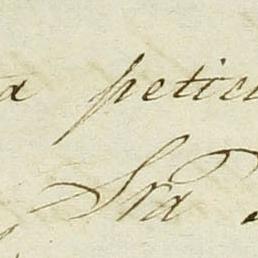 a petici
Sra